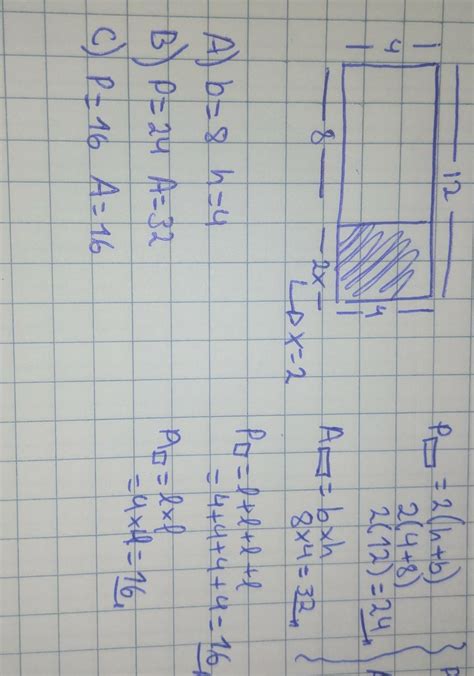 12
4
4
8 2x
↳ x=2
A) b=8 h=4
B) P=24 A=32
C) P=16 A=16
P▭ = 2(h+b)
2(4+8)
2(12)=24
A▭ = b×h
8×4=32
P□ = l+l+l+l
=4+4+4+4=16
A□ = l×l
=4×4=16